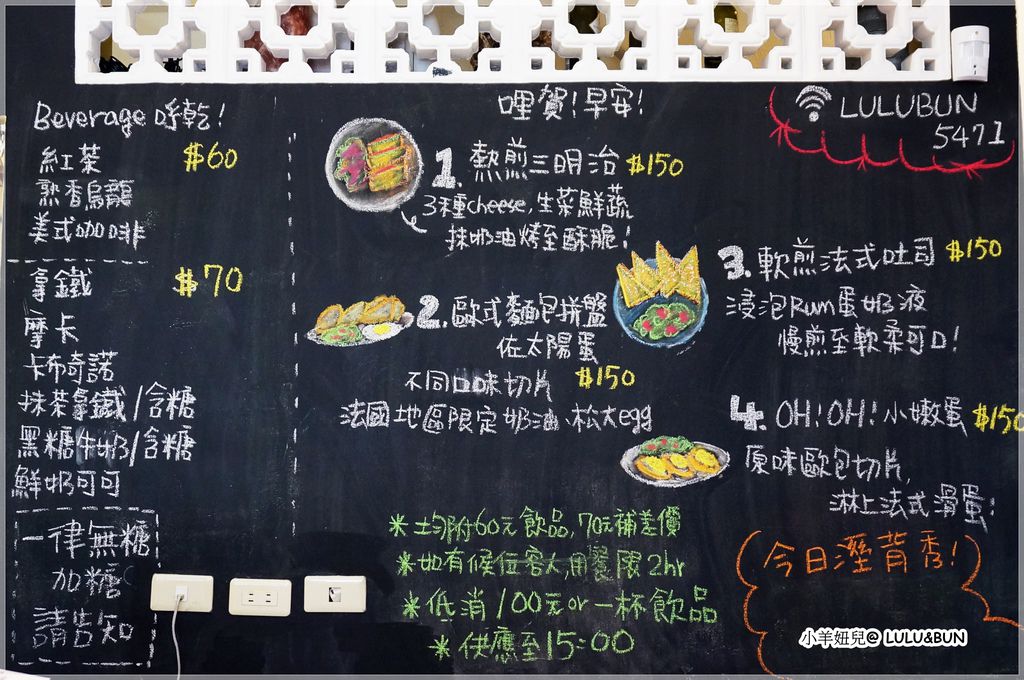 Beverage 呼乾!
紅茶 $60
熟香烏龍
美式咖啡
拿鐵 $70
摩卡
卡布奇諾
抹茶拿鐵/含糖
黑糖牛奶/含糖
鮮奶可可
一律無糖
加糖
請告知
哩賀!早安!
1. 熱煎三明治 $150
3種cheese,生菜鮮蔬
抹奶油烤至酥脆!
2. 歐式麵包拼盤
佐太陽蛋
不同口味切片 $150
法國地區限定奶油、松大egg
LULUBUN
5471
3. 軟煎法式吐司 $150
浸泡Rum蛋奶液
慢煎至軟柔可口!
4. OH!OH!小嫩蛋 $150
原味歐包切片,
淋上法式滑蛋!
*均附60元飲品,70元補差價
*如有候位客人,用餐限2hr
*低消100元or一杯飲品
*供應至15:00
今日溼背秀!
小羊妞兒@ LULU&BUN